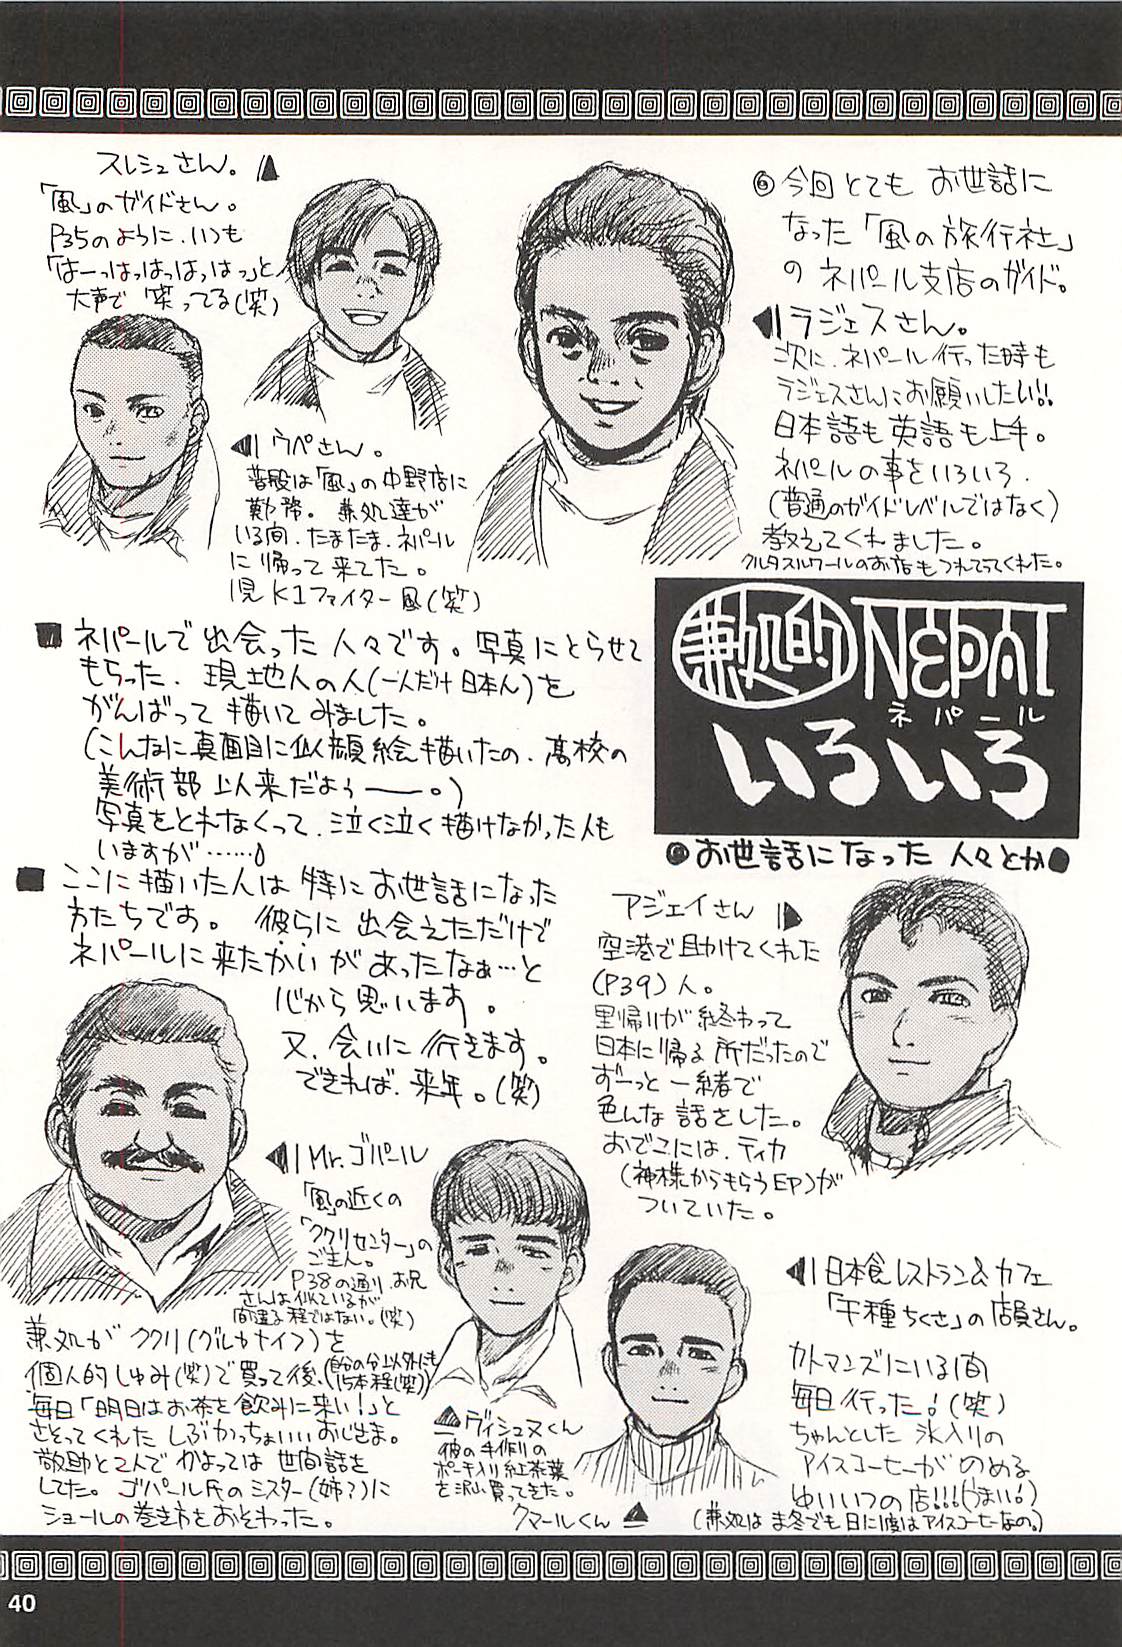 ⑥今回とても お世話に
なった「風の旅行社」
の ネパール支店のガイド。
ラジェスさん。
次に、ネパール行った時も
ラジェスさんにお願いしたい!!
日本語も英語も上手。
ネパールの事をいろいろ、
(普通のガイドレベルではなく)
教えてくれました。
クルタスルワールのお店もつれてってくれた。
スレシュさん。
「風」のガイドさん。
P35のように、いつも
「はーっはっはっはっはっ」と
大声で 笑ってる(笑)
ウペさん。
普段は「風」の中野店に
勤務。兼処達が
いる間、たまたま、ネパール
に帰って来てた。
児 K1ファイター風(笑)
兼処的 NEPAL
ネパール
いろいろ
お世話になった 人々とか
■ ネパールで出会った人々です。写真にとらせて
もらった、現地人の人(一人だけ日本人)を
がんばって描いてみました。
(こんなに真面目に似顔絵描いたの、高校の
美術部以来だよぅー。)
写真をとれなくって、泣く泣く描けなかった人も
いますが……
■ ここに描いた人は 特にお世話になった
方たちです。 彼らに出会えただけで
ネパールに来たかいがあったなぁ…と
心から思います。
又、会いに行きます。
できれば、来年。(笑)
アジェイさん
空港で助けてくれた
(P39)人。
里帰りが終わって
日本に帰る所だったので
ずーっと一緒で
色んな話をした。
おでこには、ティカ
(神様からもらう印)が
ついていた。
Mr.ゴパール
「風」の近くの
「ククリセンター」の
ご主人。
P38の通り、お兄
さんは似ているが
間違う程ではない。(笑)
兼処がククリ(グルカナイフ)を
個人的しゅみ(笑)で買って後、(自分の分以外にも
15本程(笑))
毎日「明日はお茶を飲みに来い!」と
さそってくれた しぶかっちょいいおじさま。
敬助と2人で かよっては 世間話を
してた。ゴパール氏のシスター(姉?)に
ショールの巻き方をおそわった。
ヴィシュヌくん
彼の手作りの
ポーチ入り紅茶葉
を沢山買ってきた。
クマールくん
日本食レストラン&カフェ
「千種ちくさ」の店員さん。
カトマンズにいる間
毎日行った!(笑)
ちゃんとした 氷入りの
アイスコーヒーがのめる
ゆいいつの店!!!(うまい!)
(兼処は ま冬でも日に1度はアイスコーヒーなの。)
40